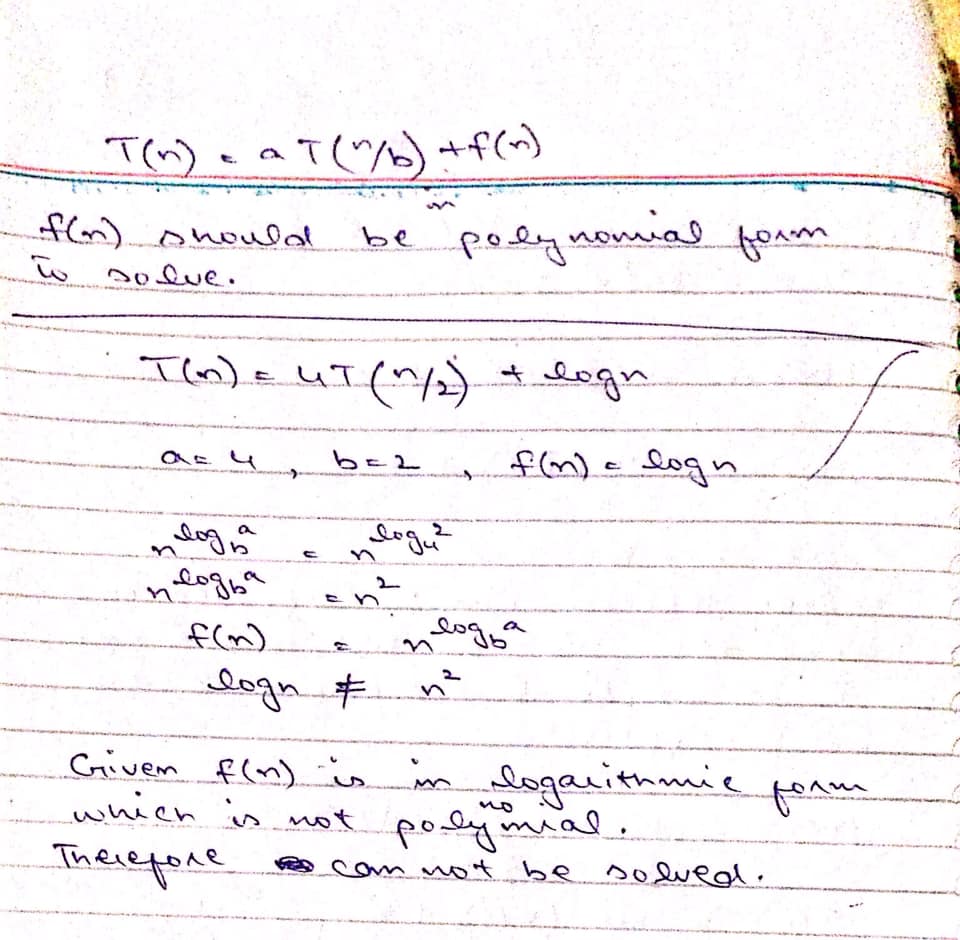 T(n) = a T(n/b) + f(n)
f(n) should be in polynomial form
to solve.
T(n) = 4T(n/2) + logn
a = 4 , b = 2 , f(n) = logn
n^log_b^a = n^log_4^2
n^log_b^a = n^2
f(n) = n^log_b^a
logn ≠ n^2
Given f(n) is in logarithmic form
which is not polynomial.
Therefore can not be solved.